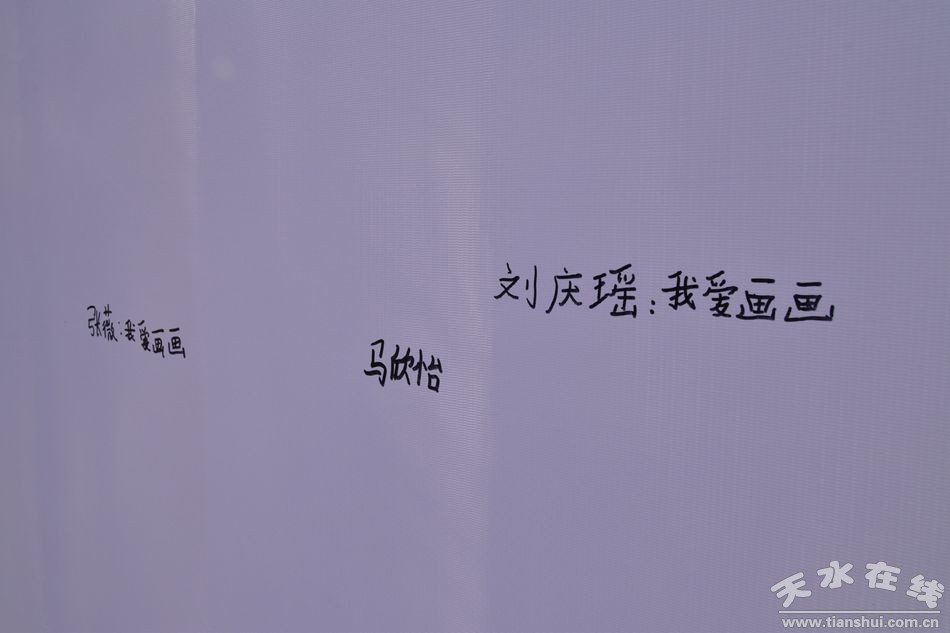 刘庆瑶:我爱画画
张薇:我爱画画
马欣怡
天水在线
www.tianshui.com.cn